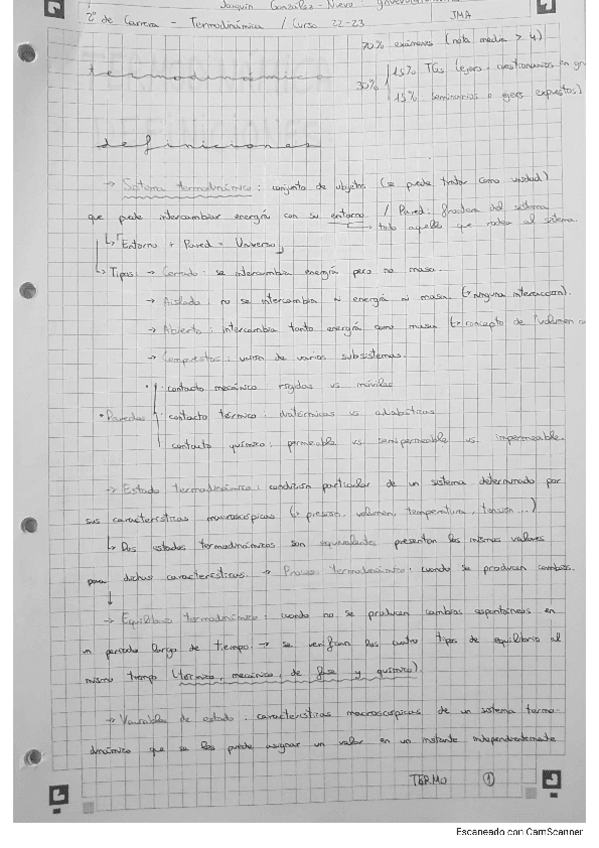 Joaquín González-Nuevo
2º de Carrera - Termodinámica / Curso 22-23
JMA
70% exámenes (nota media > 4)
30%
15% TGs (ejers. cuestionarios en gr
15% seminarios o ejers expuestos)
termodinámica
definiciones
→ Sistema termodinámico: conjunto de objetos (se puede tratar como unidad)
que puede intercambiar energía con su entorno / Pared: frontera del sistema
→ todo aquello que rodea al sistema.
↳ "Entorno + Pared = Universo"
↳ Tipos: → Cerrado: se intercambia energía pero no masa.
→ Aislado: no se intercambia ni energía ni masa (ninguna interacción).
→ Abierto: intercambia tanto energía como masa (concepto de "volumen
→ Compuestos: unión de varios subsistemas.
· contacto mecánico rígidas vs móviles
• Paredes contacto térmico: diatérmicas vs adiabáticas
contacto químico: permeable vs semipermeable vs impermeable.
→ Estado termodinámico: condición particular de un sistema determinado por
sus características macroscópicas (presión, volumen, temperatura, tensión...)
↳ Dos estados termodinámicos son equivalentes presentan los mismos valores
para dichas características. → Proceso termodinámico: cuando se producen cambios.
→ Equilibrio termodinámico: cuando no se producen cambios espontáneos en
un periodo largo de tiempo → se verifican los cuatro tipos de equilibrio al
mismo tiempo (térmico, mecánico, de fase y químico).
→ Variables de estado: características macroscópicas de un sistema termo-
dinámico que se les puede asignar un valor en un instante independientemente
TERMO 1
Escaneado con CamScanner